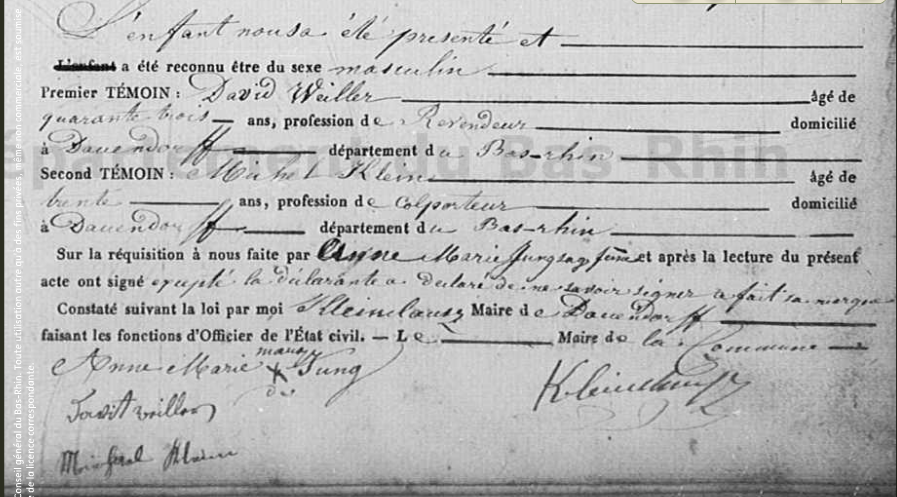 L'enfant nous a été presenté et
L'enfant a été reconnu être du sexe masculin
Premier TÉMOIN : David Weiller âgé de
quarante trois ans, profession de Revendeur domicilié
à Dauendorff département du Bas-rhin
Second TÉMOIN : Michel Klein âgé de
trente ans, profession de Colporteur domicilié
à Dauendorff département du Bas-rhin
Sur la réquisition à nous faite par Anne Marie Jung et après la lecture du présent
acte ont signé excepté la déclarante a declaré de ne savoir signer a fait sa marque
Constaté suivant la loi par moi Kleinclausz Maire de Dauendorff
faisant les fonctions d'Officier de l'État civil. — Le Maire de la Commune
Anne Marie Jung
marq
de
Kleinclausz
Klein
Département du Bas Rhin
Conseil général du Bas-Rhin. Toute utilisation autre qu'à des fins privées, même non commerciale, est soumise
de la licence correspondante.